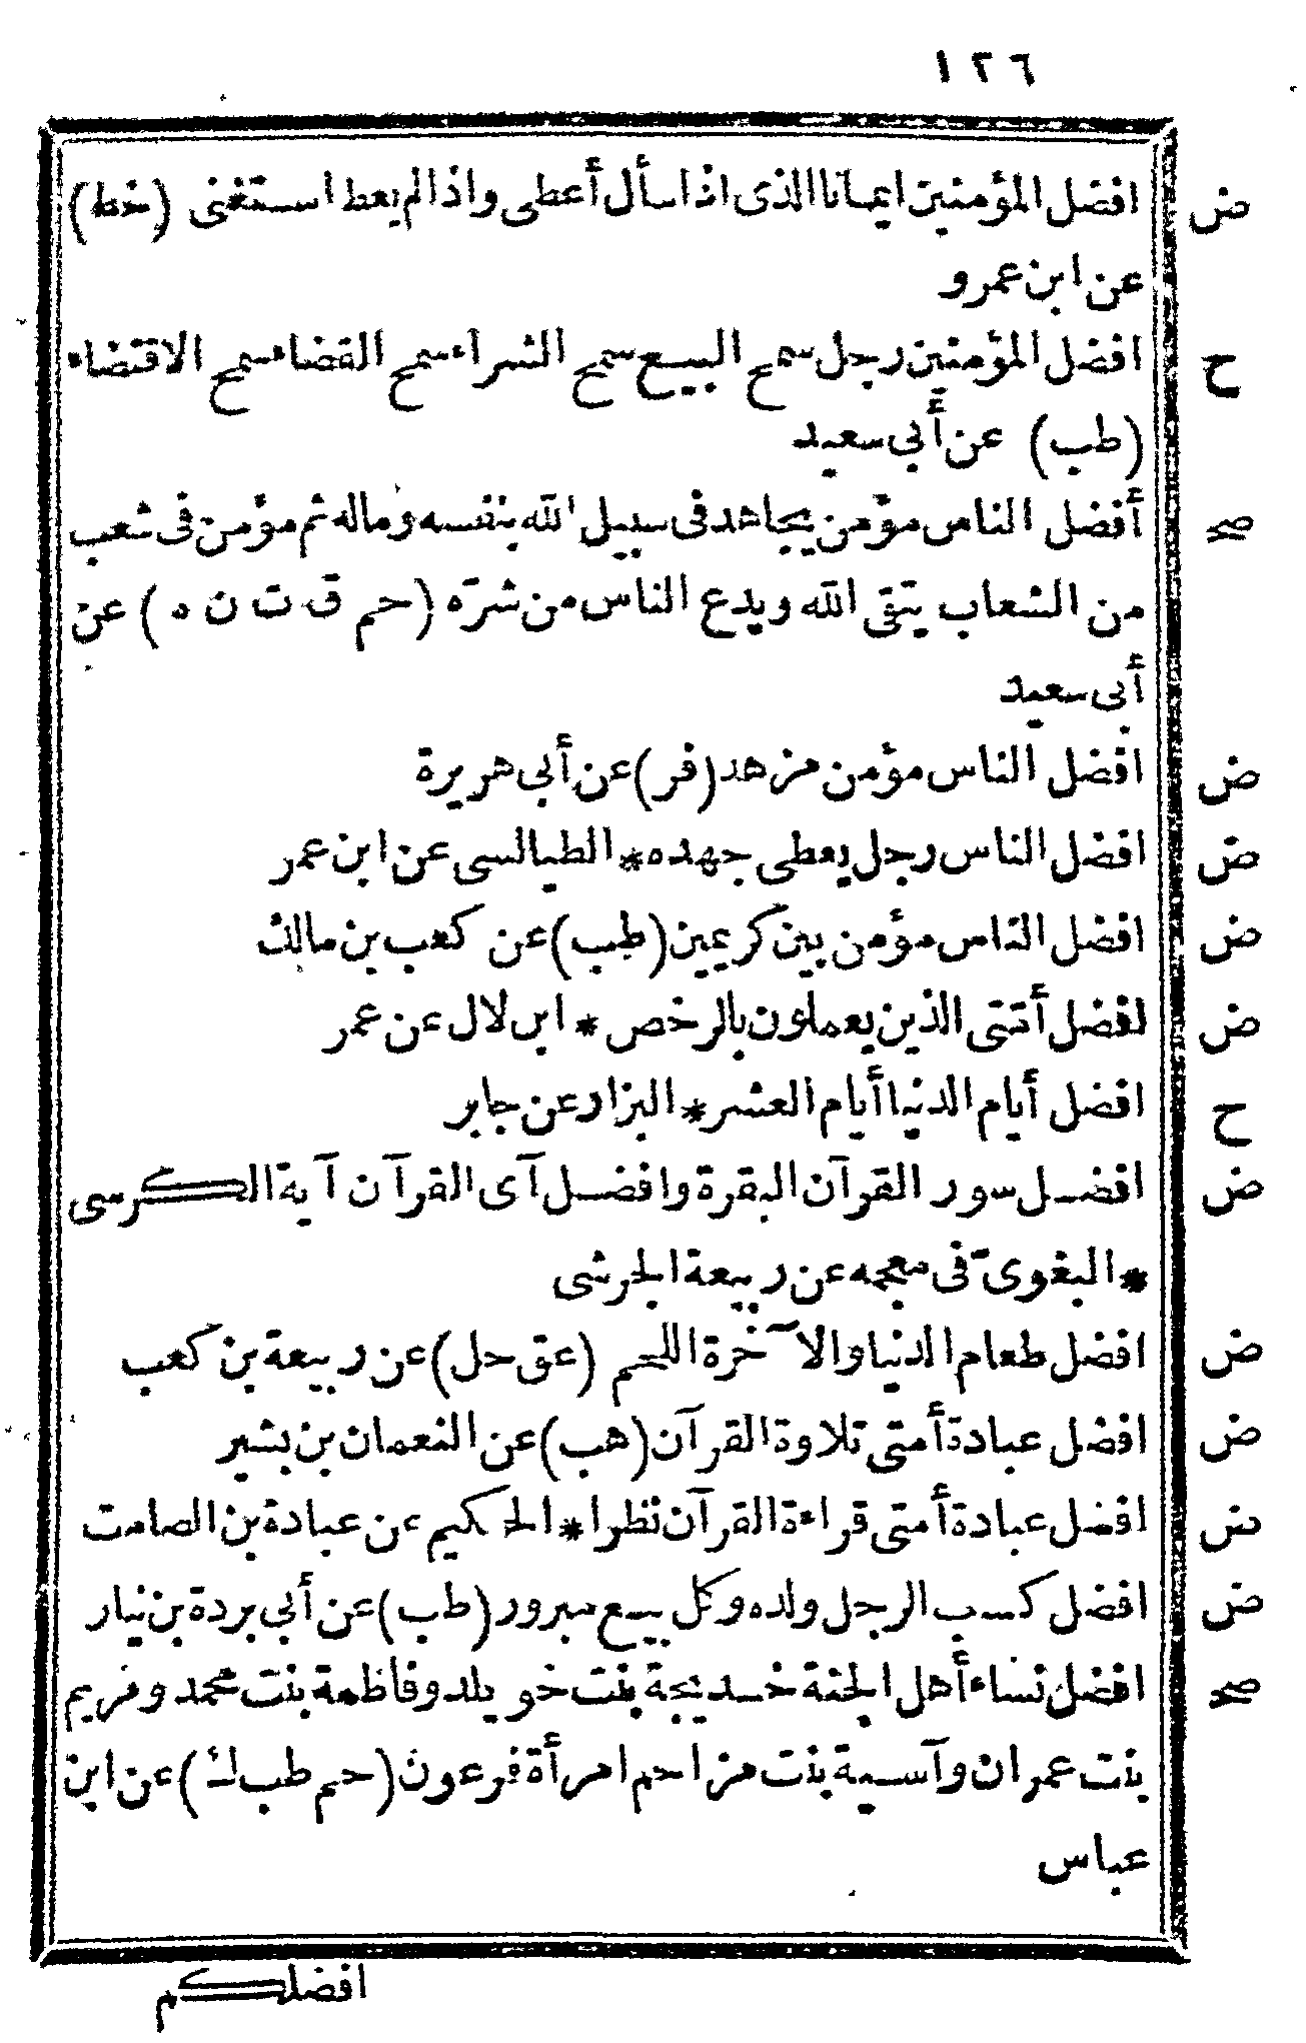 ١٢٦
ض افضل المؤمنين ايمانا الذى اذا سأل أعطى واذا لم يعط استغنى (خط)
عن ابن عمرو
ح افضل المؤمنين رجل سمح البيع سمح الشراء سمح القضاء سمح الاقتضاء
(طب) عن أبي سعيد
صح أفضل الناس مؤمن يجاهد فى سبيل الله بنفسه وماله ثم مؤمن فى شعب
من الشعاب يتقى الله ويدع الناس من شرّه (حم ق ت ن ه) عن
أبى سعيد
ض افضل الناس مؤمن مزهد (فر) عن أبي هريرة
ض افضل الناس رجل يعطى جهده * الطيالسى عن ابن عمر
ض افضل الناس مؤمن بين كريمين (طب) عن كعب بن مالك
ض افضل أمّتى الذين يعملون بالرخص * ابن لال عن عمر
ح افضل أيام الدنيا أيام العشر * البزار عن جابر
ض افضل سور القرآن البقرة وافضل آى القرآن آية الكرسى
* البغوىّ فى معجمه عن ربيعة الجرشى
ض افضل طعام الدنيا والآخرة اللحم (عق حل) عن ربيعة بن كعب
ض افضل عبادة أمتى تلاوة القرآن (هب) عن النعمان بن بشير
ض افضل عبادة أمتى قراءة القرآن نظرا * الحكيم عن عبادة بن الصامت
ض افضل كسب الرجل ولده وكل بيع مبرور (طب) عن أبي بردة بن نيار
صح افضل نساء أهل الجنة خديجة بنت خويلد وفاطمة بنت محمد ومريم
بنت عمران وآسية بنت مزاحم امرأة فرعون (حم طب ك) عن ابن
عباس
افضلكم